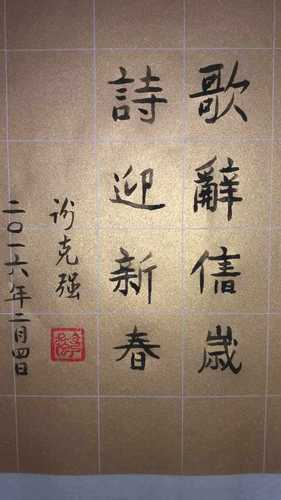 歌辭歲
詩迎新春
谢克强
二〇一六年二月四日